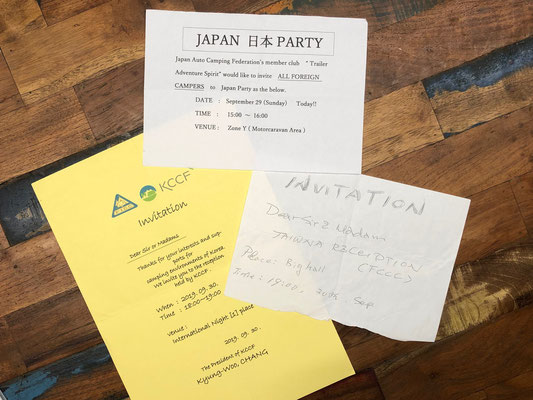 JAPAN 日本 PARTY
Japan Auto Camping Federation's member club " Trailer
Adventure Spirit" would like to invite ALL FOREIGN
CAMPERS to Japan Party as the below.
DATE : September 29 (Sunday) Today!!
TIME : 15:00 ～ 16:00
VENUE : Zone Y ( Motorcaravan Area )
KCCF
Invitation
Dear Sir or Madams
Thanks for your interests and sup-
ports for
camping environments of Korea
We invite you to the reception
held by KCCF.
When : 2019. 09. 30.
Time : 18:00~19:00
Venue :
International Night [1] place
2019. 09. 30.
The President of KCCF
Kyung-Woo, CHANG
INVITATION
Dear Sir & Madam
TAIWNA RECEPTION
(FCCC)
Place: Big hall
Time: 19:00, Sep